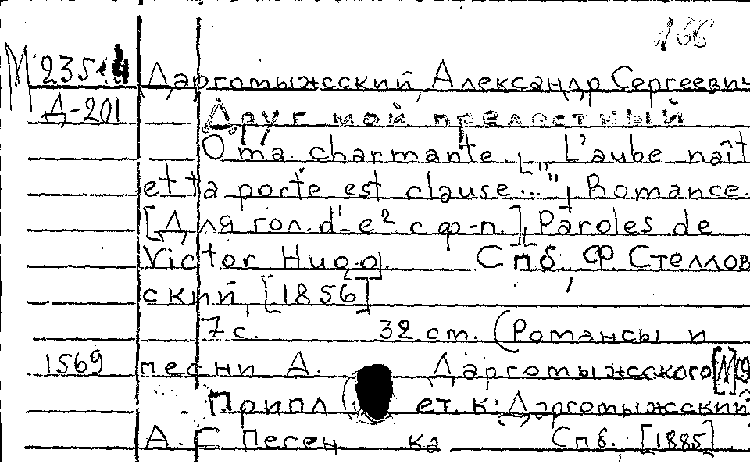 166
М 235
Даргомыжсский, Александр Сергеевич
Д-201
Друг мой прелестный
O ma charmante. "L'aube naît
et ta porte est clause...", Romance.
[Для гол. d'-e² с ф-п.], Paroles de
Victor Hugo. Спб, Ф. Стеллов
ский, [1856]
7 с. 32 см. (Романсы и
1569 песни А. Даргомыжского
Припл ет. к: Даргомыжский
А. С. Песен ка Спб. [1885]